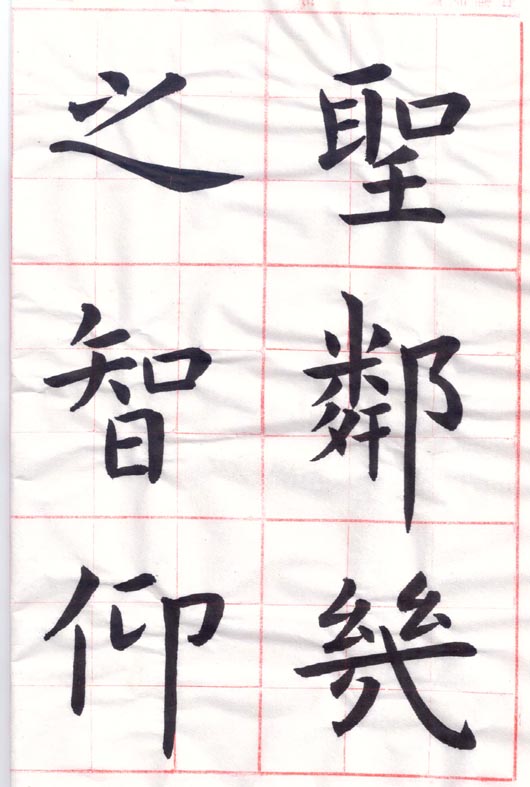 聖鄰幾
之智仰